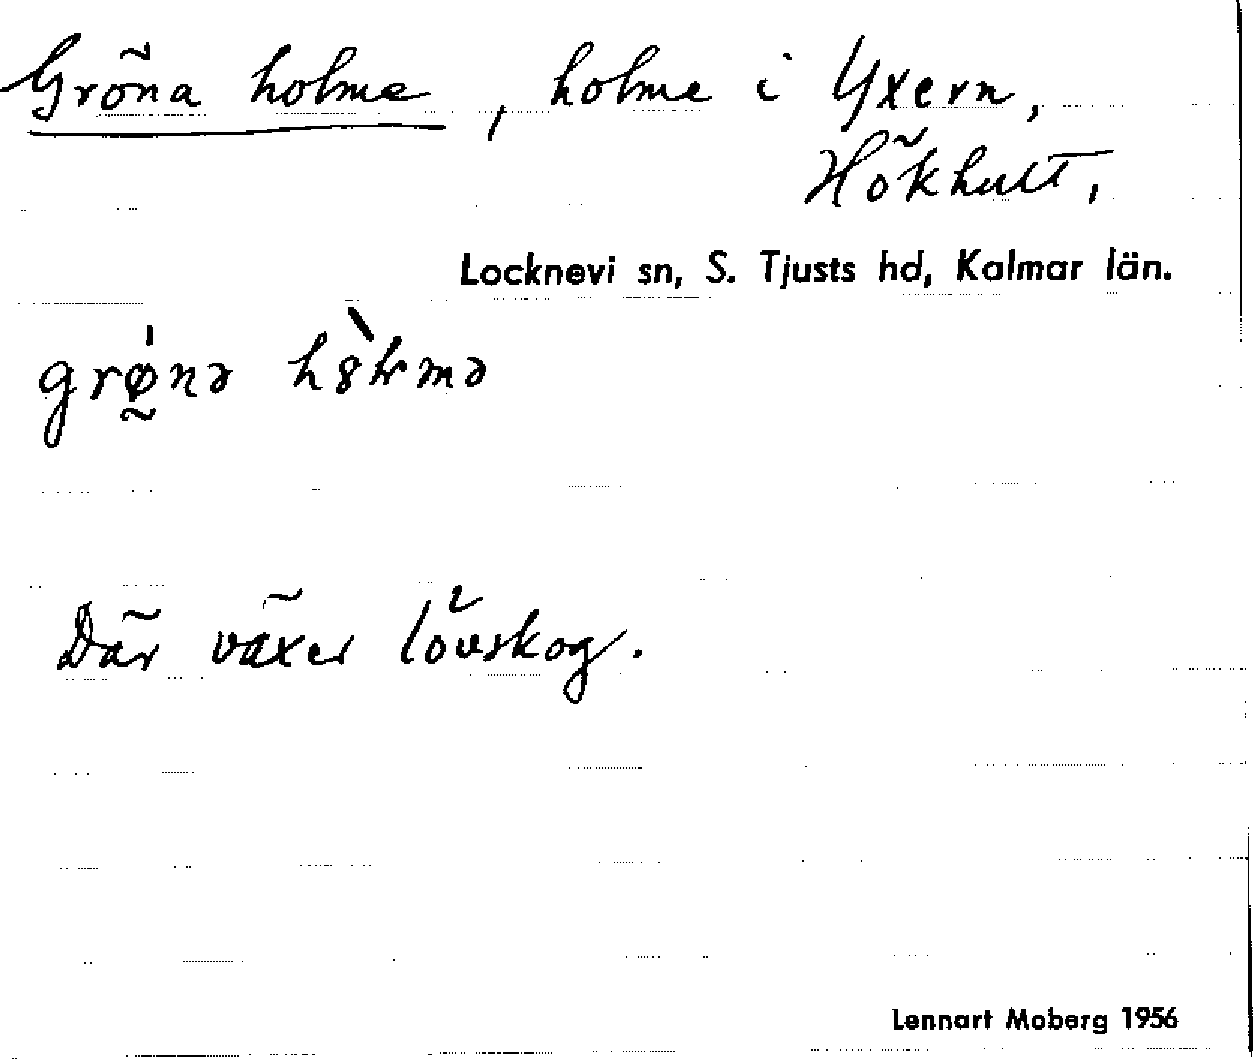 Gröna holme, holme i Yxern,
Hökhult,
Locknevi sn, S. Tjusts hd, Kalmar län.
grǿ̰nə
Där växer lövskog.
Lennart Moberg 1956